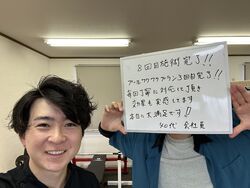 8回目施術完了!!
アールワクワクプラン3回目完了!!
毎回丁寧に対応して頂き
効果も実感してます
本当に大満足です!!
40代 会社員